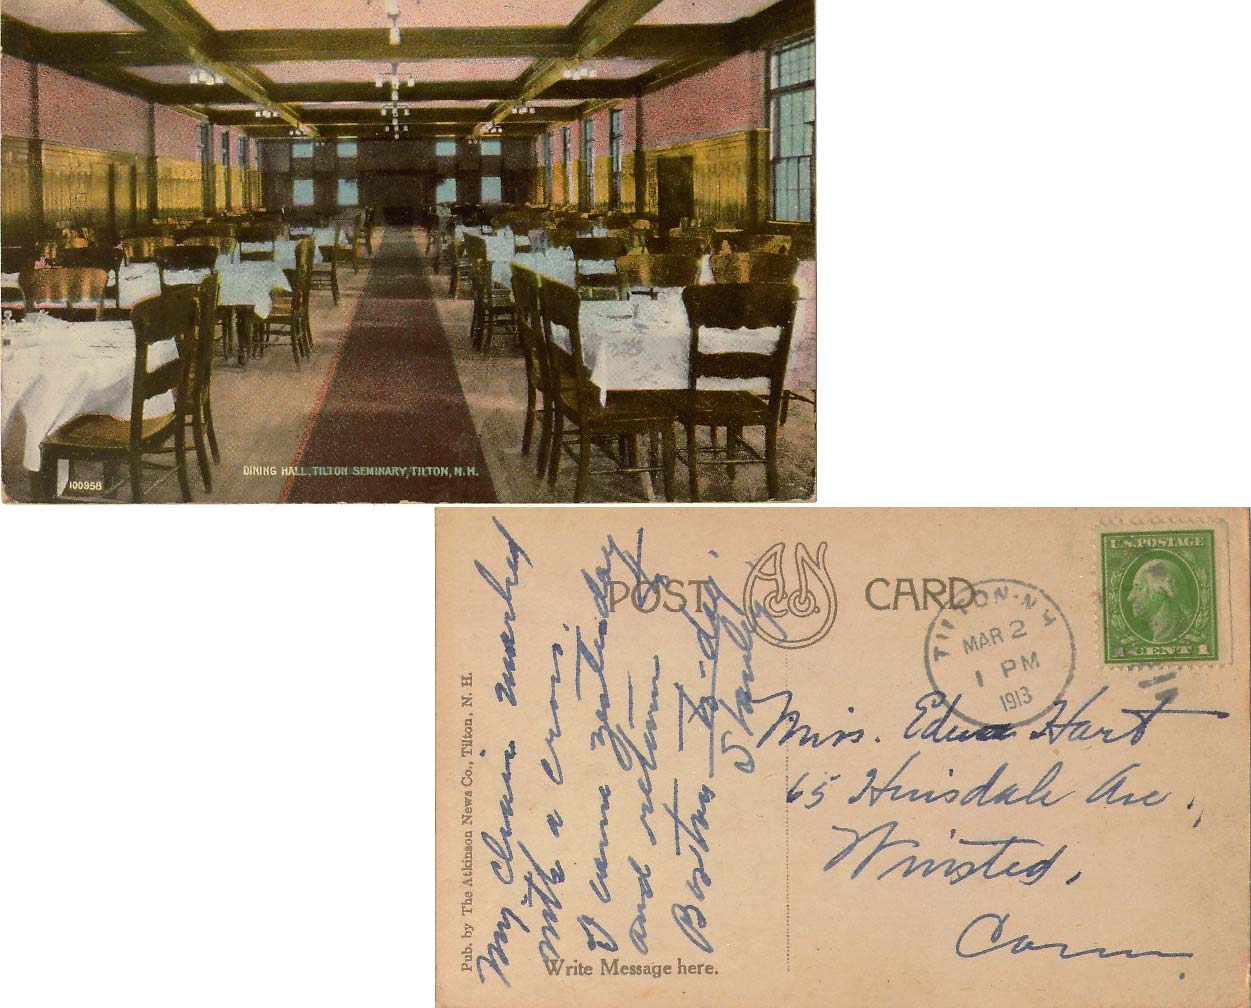 DINING HALL, TILTON SEMINARY, TILTON, N.H.
100958
POST CARD
A N CO.
U.S. POSTAGE
1 CENT 1
TILTON · N.H.
MAR 2
1 PM
1913
Pub. by The Atkinson News Co., Tilton, N. H.
My chair marked
with a cross.
I came yesterday
and return to
Boston to-day.
Stanley
Write Message here.
Miss. Edna Hart
65 Hinsdale Ave.,
Winsted,
Conn.